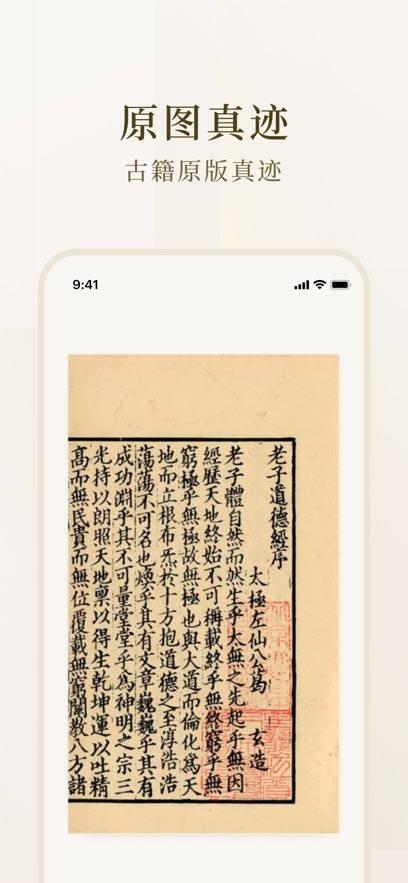 原图真迹
古籍原版真迹
9:41
老子道德經序
太極左仙公葛 玄造
老子體自然而然生乎太無之先起乎無因
經歷天地終始不可稱載終乎無終窮乎無
窮極乎無極故無極也與大道而倫化爲天
地而立根布炁於十方抱道德之至淳浩浩
蕩蕩不可名也煥乎其有文章巍巍乎其有
成功淵乎其不可量堂堂乎爲神明之宗三
光持以朗照天地稟以得生乾坤運以吐精
髙而無民貴而無位覆載無窮闡教八方諸